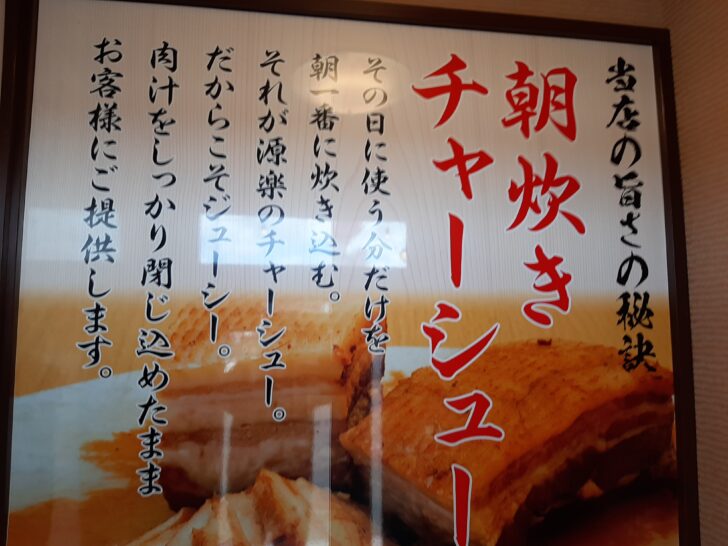 当店の旨さの秘訣
朝炊き
チャーシュー
その日に使う分だけを
朝一番に炊き込む。
それが源楽のチャーシュー。
だからこそジューシー。
肉汁をしっかり閉じ込めたまま
お客様にご提供します。